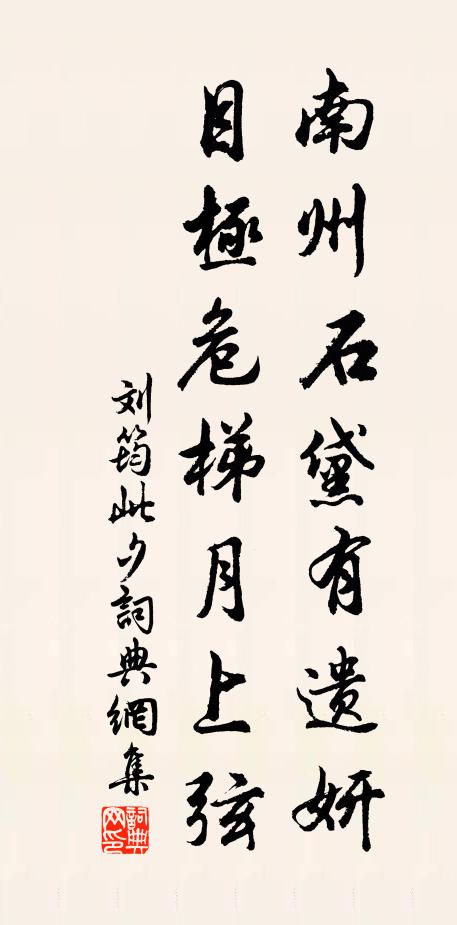 南州石黛有遺妍
目極危梯月上弦
刘筠此夕詞典網集
詞典网印